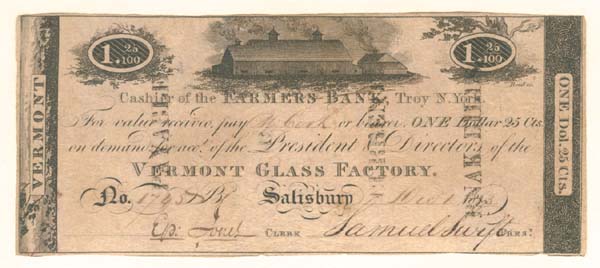 1 25/100
1 25/100
VERMONT
ONE Dol. 25 Cts.
Cashier of the FARMERS BANK, Troy N. York.
For value received, pay or bearer, ONE Dollar 25 Cts.
on demand, for acc.t of the President & Directors of the
VERMONT GLASS FACTORY.
No. Salisbury
Ep: Jones CLERK Samuel Swift PRES.t
PAYABLE